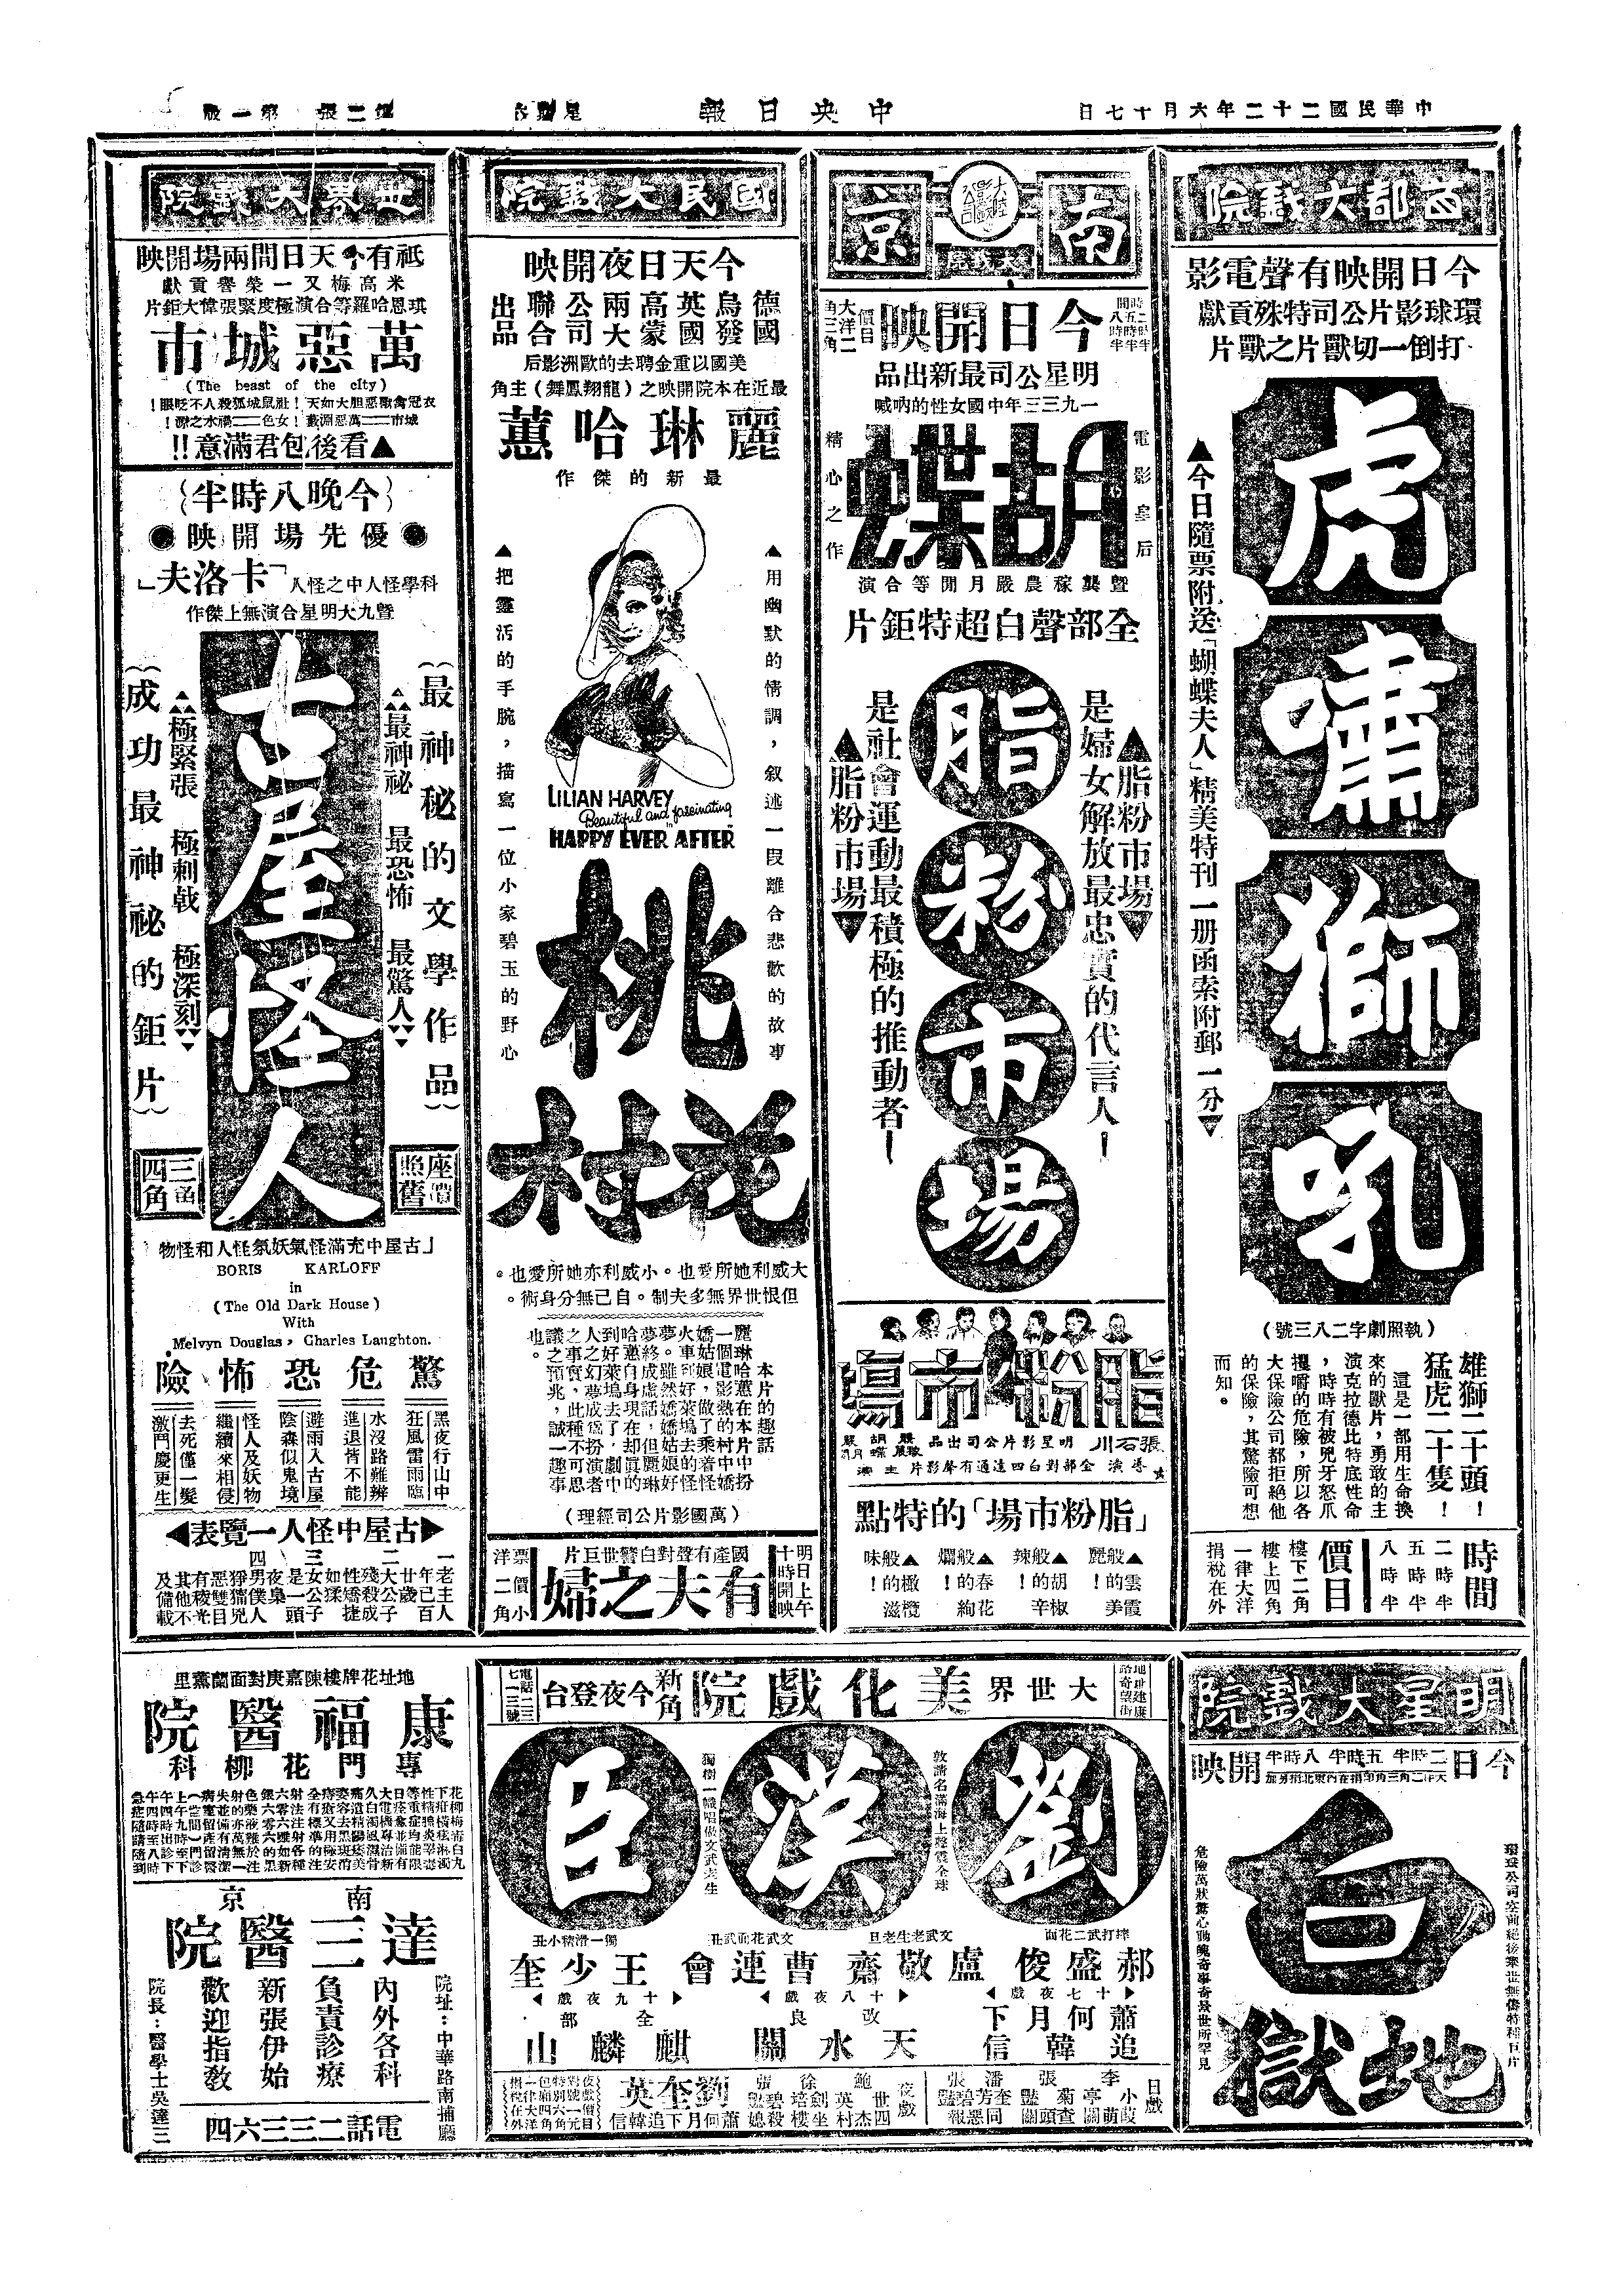 中華民國二十二年六月十七日
中央日報
星期六
第二張 第一版
首都大戲院
今日開映有聲電影
環球影片公司特殊貢獻
打倒一切獸片之獸片
▲今日隨票附送「蝴蝶夫人」精美特刊一册函索附郵一分▼
虎嘯獅吼
(執照劇字二八三號)
雄獅二十頭!
猛虎二十隻!
這是一部用生命換
來的獸片,勇敢的主
演克拉德比特底性命
,時時有被兇牙怒爪
攫嚼的危險,所以各
大保險公司都拒絕他
的保險,其驚險可想
而知。
時間
二時半
五時半
八時半
價目
樓下二角
樓上四角
一律大洋
捐稅在外
南京大戲院
今日開映
時間
二時半
五時半
八時半
價目
大洋二角三角
明星公司最新出品
一九三三年中國女性的吶喊
電影皇后
胡蝶
精心之作
暨龔稼農嚴月閒等合演
全部聲白超特鉅片
▲脂粉市場▼
是婦女解放最忠實的代言人!
脂粉市場
是社會運動最積極的推動者!
▲脂粉市場▼
脂粉市場
張石川
明星影片公司出品
導演 全部對白四達通有聲影片 主演
「脂粉市場」的特點
▲雲霞般的美麗!
▲胡椒般的辛辣!
▲春花般的絢爛!
▲橄欖般的滋味!
國民大戲院
今天日夜開映
德國烏發英國高蒙兩大公司聯合出品
美國以重金聘去的歐洲影后
最近在本院開映之(龍翔鳳舞)主角
麗琳哈蕙
最新的傑作
▲用幽默的情調,叙述一段離合悲歡的故事
▲把靈活的手腕,描寫一位小家碧玉的野心
LILIAN HARVEY
Beautiful and fascinating
in
HAPPY EVER AFTER
桃花村
大威利她所愛也。小威利亦她所愛也。
但恨世界無多夫制。自己無分身術。
本片的趣話
麗琳哈蕙在本片中扮
一個電影熱的村中嬌
嬌姑娘,做了乘着怪
火車到好萊塢去的怪
夢。雖然嬌姑娘好
夢終成虛話,但麗琳
哈蕙自身現在却眞的
到好萊塢去了,劇中
人之幻夢成爲扮演者
之事實,此種不可思
議之預兆,誠一趣事
也。
(萬國影片公司經理)
明日上午十時開映
國產有聲對白警世巨片
有夫之婦
票價小洋二角
世界大戲院
祇有今天日間兩場開映
米高梅又一榮譽貢獻
琪恩哈羅等合演極度緊張偉大鉅片
萬惡城市
(The beast of the city)
衣冠禽獸惡胆大如天!社鼠城狐殺人不眨眼!
城市——萬惡淵藪!女色——禍水之源!
▲看後包君滿意!!
(今晚八時半)
●優先場開映●
科學怪人中之怪人「卡洛夫」
暨九大明星合演無上傑作
(最神秘的文學作品)
最神祕 最恐怖 最驚人
古屋怪人
極緊張 極刺戟 極深刻
(成功最神祕的鉅片)
座價照舊
三角四角
「古屋中充滿怪氣妖氛怪人和怪物
BORIS KARLOFF
in
(The Old Dark House)
With
Melvyn Douglas, Charles Laughton.
驚危恐怖險
黑夜行山中
狂風雷雨臨
水沒路難辨
進退皆不能
避雨入古屋
陰森似鬼境
怪人及妖物
繼續來相侵
去死僅一髮
激鬥慶更生
古屋中怪人一覽表
一 老主人年已百廿歲
二 大公子殘殺成性矯捷如猱
三 女公子是一夜梟頭
四 男僕人猙獰兇惡雙目有稜光
及其他不備載
明星大戲院
今日 二時半 五時半 八時半 開映
環球公司空前絕後舉世無儔特種巨片
白地獄
危險萬狀驚心動魄奇事奇景世所罕見
地址建康路奇望街
大世界美化戲院
新角今夜登台
電話二三七一三號
劉漢臣
敦請名滿海上聲震全球
獨樹一幟唱做文武老生
摔打武二花面
郝盛俊
文武老生老旦
盧敬齋
文武花面武丑
曹連會
獨一滑稽小丑
王少奎
十七夜戲
蕭何月下追韓信
十八夜戲
改良
天水關
十九夜戲
全部
麒麟山
日戲
夜戲
劉奎英
蕭何月下追韓信
地址花牌樓陳嘉庚對面蘭薰里
康福醫院
專門花柳科
南京
達三醫院
院址:中華路南捕廳
內外各科
負責診療
新張伊始
歡迎指敎
院長:醫學士吳達三
電話二三三六四